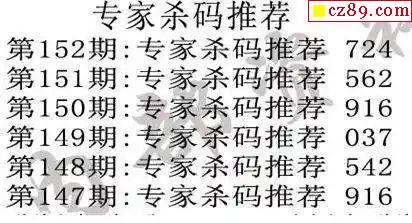 cz89.com
专家杀码推荐
第152期:专家杀码推荐 724
第151期:专家杀码推荐 562
第150期:专家杀码推荐 916
第149期:专家杀码推荐 037
第148期:专家杀码推荐 542
第147期:专家杀码推荐 916